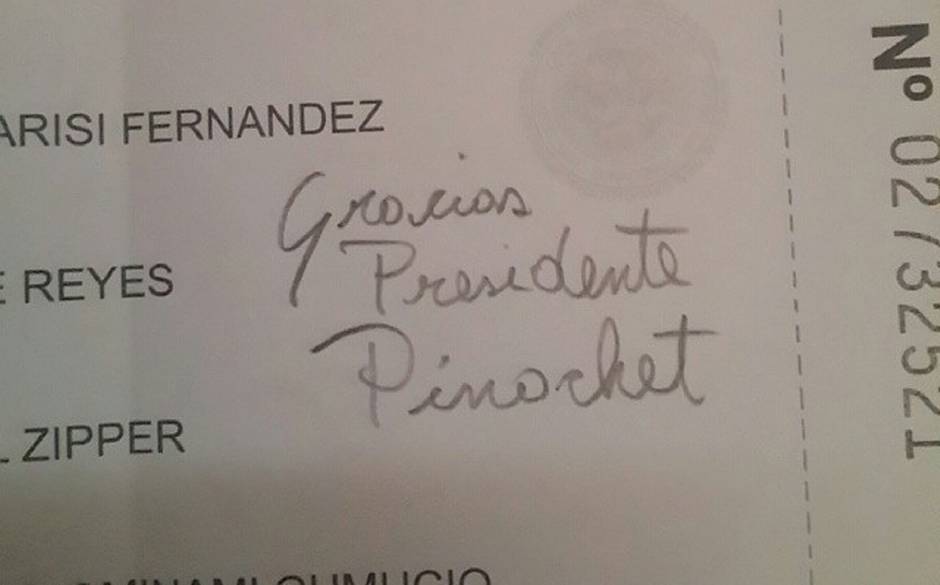 ARISI FERNANDEZ
Gracias
Presidente
E REYES
Pinochet
L ZIPPER
OMINAMI GUMUCIO
Nº 02732521